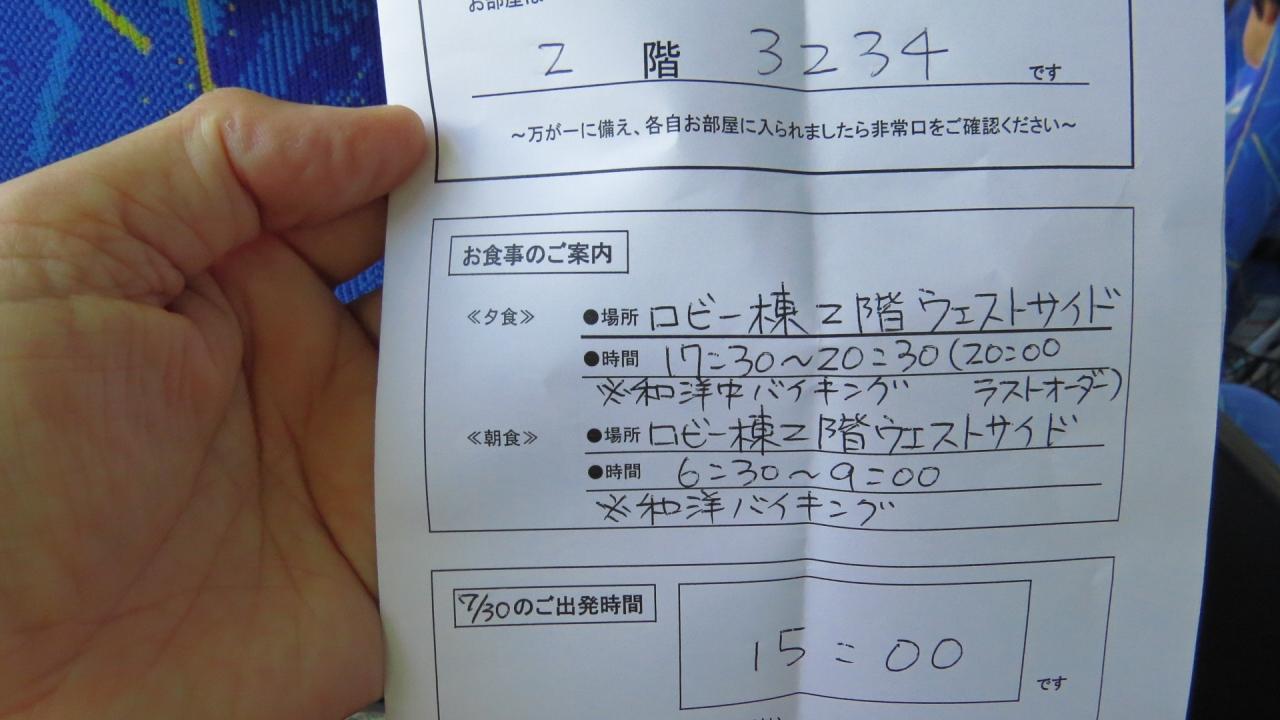 お部屋は
2 階 3234 です
～万が一に備え、各自お部屋に入られましたら非常口をご確認ください～
お食事のご案内
≪夕食≫ ●場所 ロビー棟2階ウェストサイド
●時間 17:30～20:30(20:00
※和洋中バイキング ラストオーダー)
≪朝食≫ ●場所 ロビー棟2階ウェストサイド
●時間 6:30～9:00
※和洋バイキング
7/30のご出発時間
15:00 です